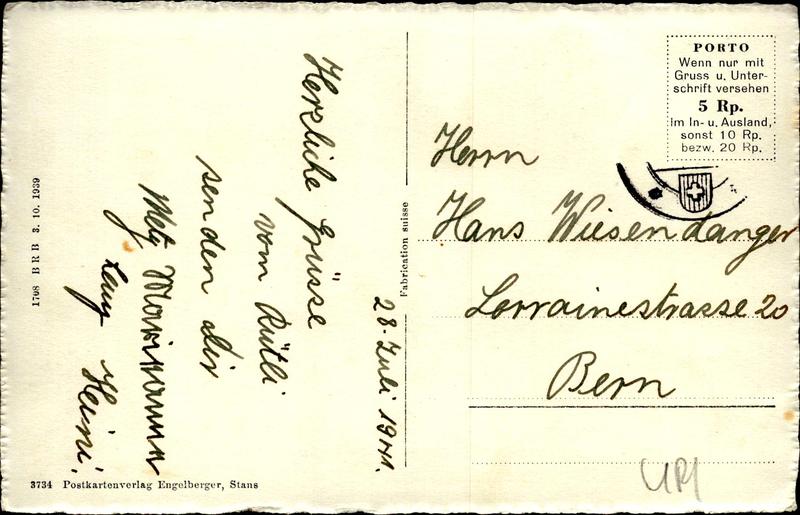 Herzliche Grüsse
vom Rütli
senden dir
Marianne
Heini.
28. Juli 1941.
1708 BRB 3. 10. 1939
3734 Postkartenverlag Engelberger, Stans
Fabrication suisse
PORTO
Wenn nur mit
Gruss u. Unter-
schrift versehen
5 Rp.
Im In- u. Ausland,
sonst 10 Rp.
bezw. 20 Rp.
Herrn
Hans Wiesendanger
Lorrainestrasse 20
Bern
URI